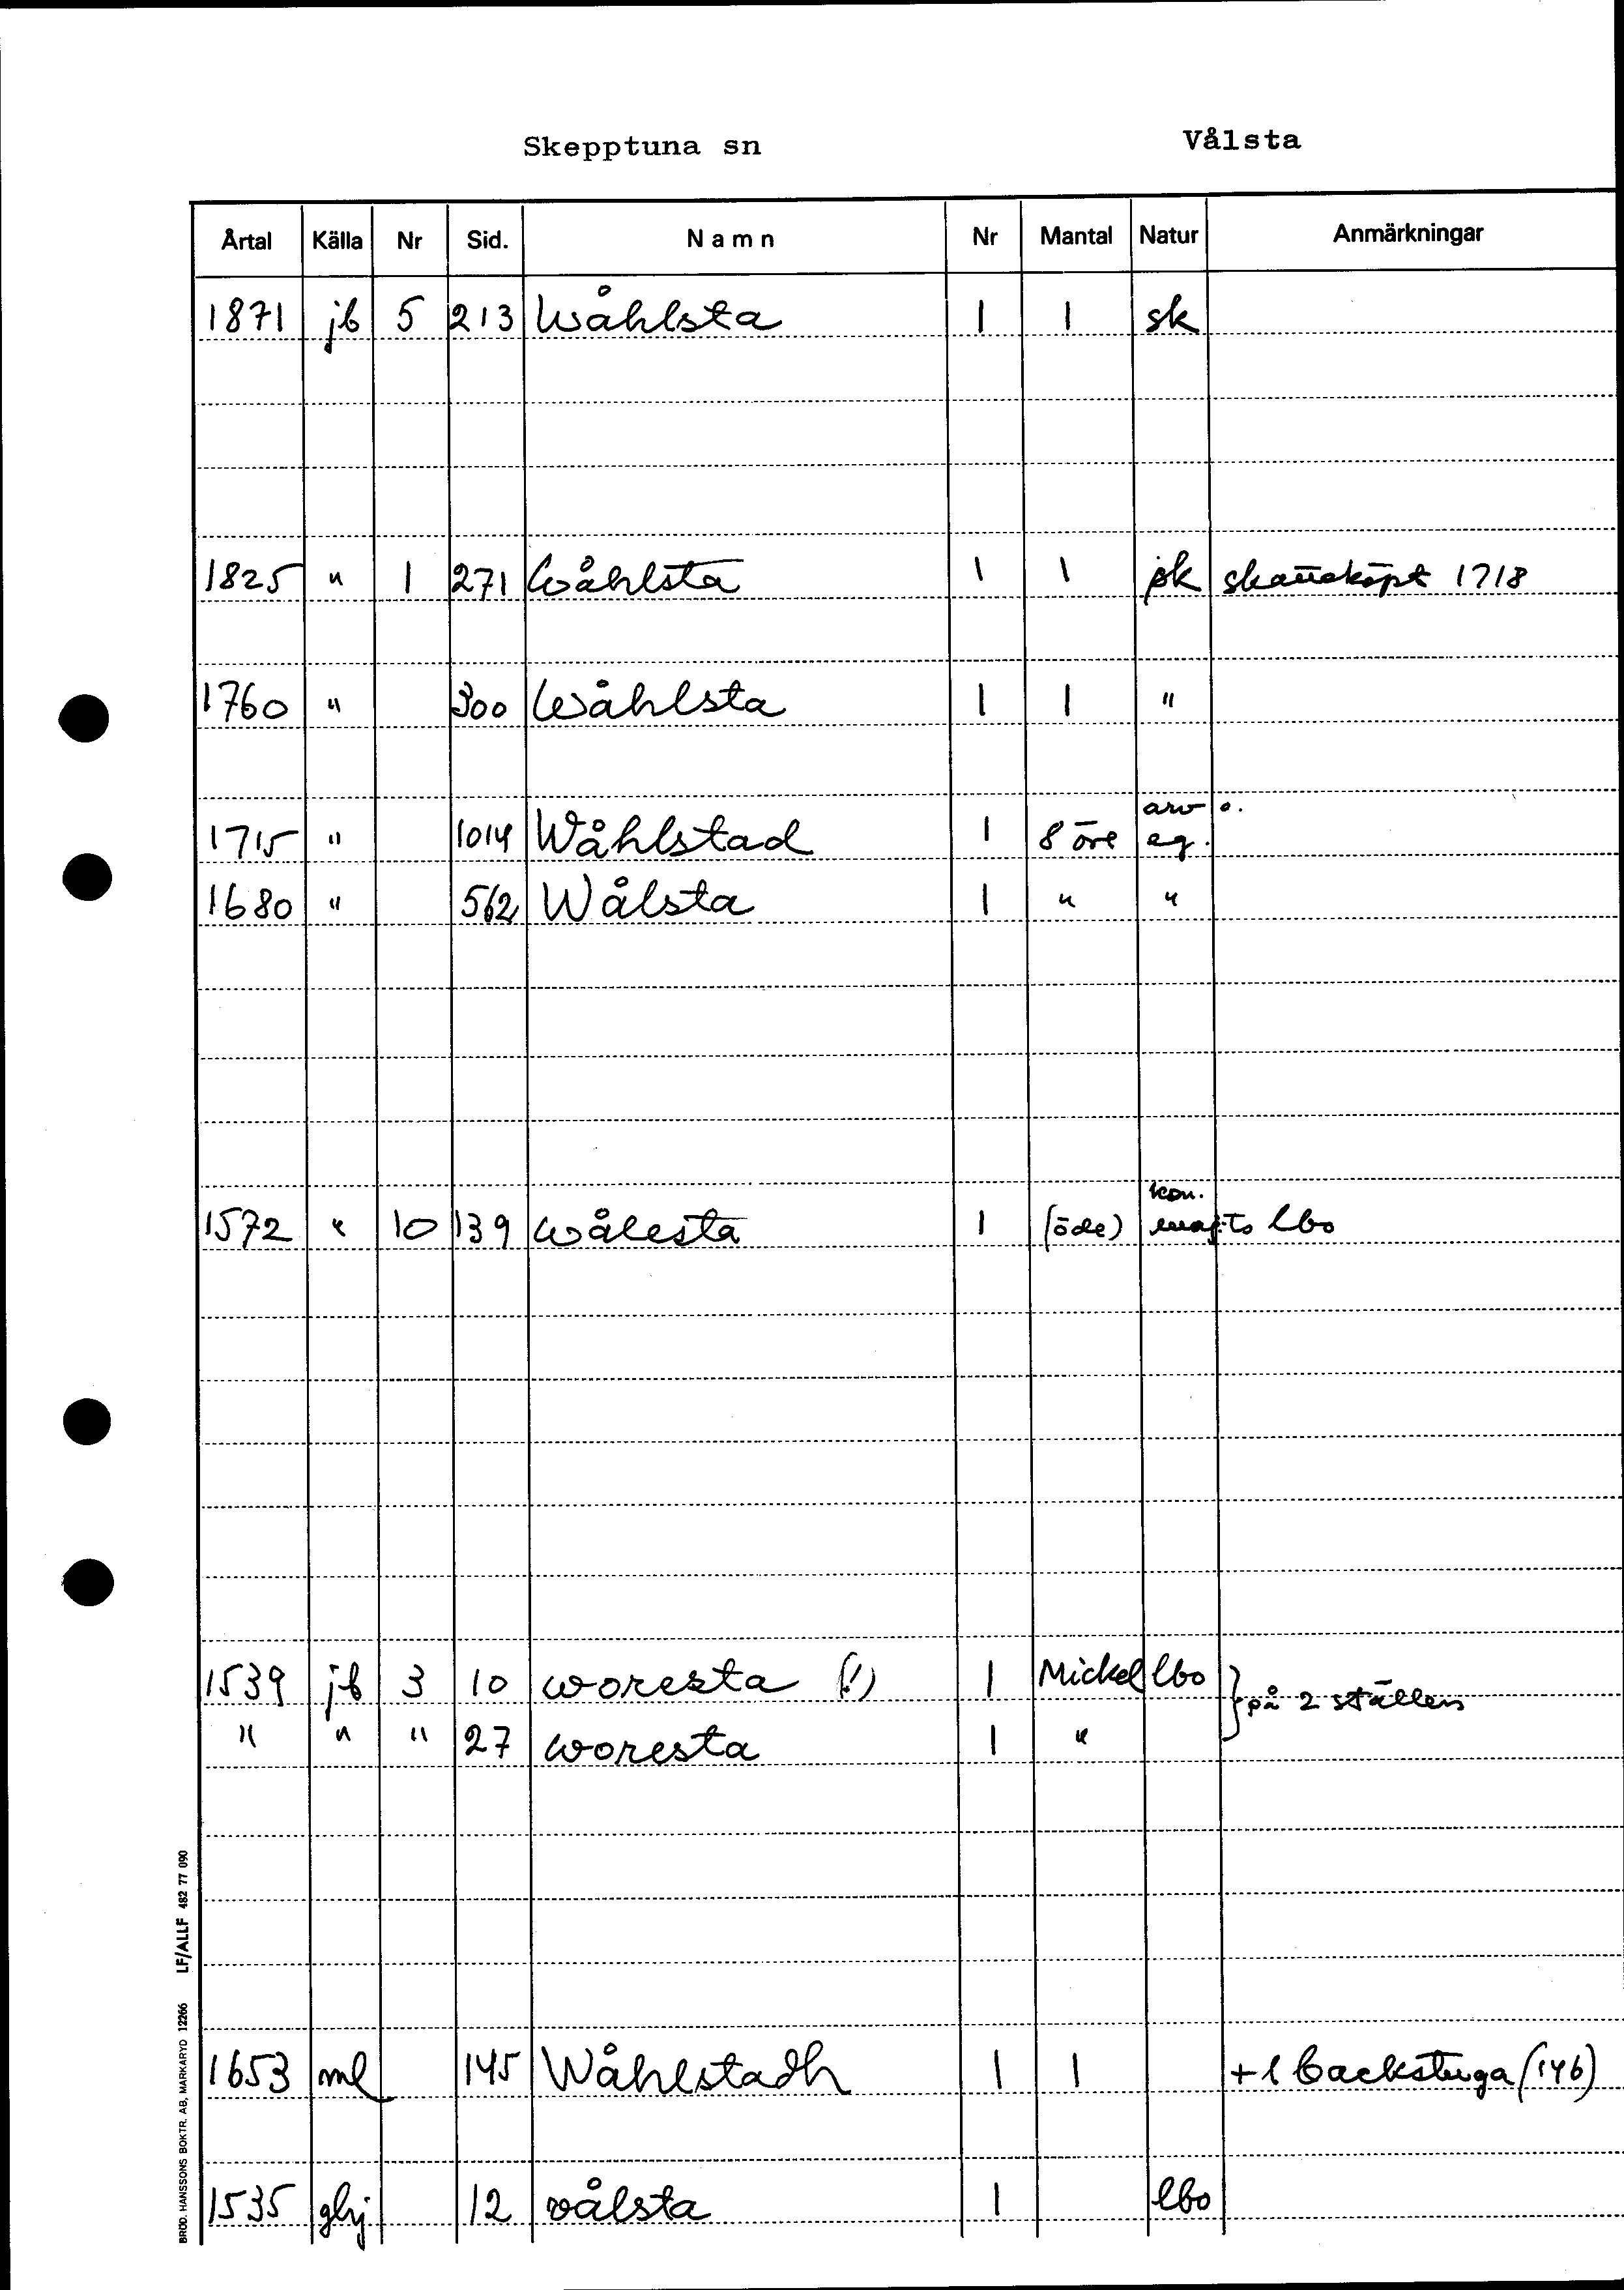 Skepptuna sn Vålsta
Årtal Källa Nr Sid. Namn Nr Mantal Natur Anmärkningar
1871 jb 5 213 Wåhlsta 1 1 sk
1825 " 1 271 Wåhlsta 1 1 sk skatteköpt 1718
1760 " 300 Wåhlsta 1 1 "
arv o.
1715 " 1014 Wåhlstad 1 8 öre eg.
1680 " 562 Wålsta 1 " "
kon.
1572 " 10 139 wålesta 1 (öde) maj:ts lbo
1539 jb 3 10 woresta (!) 1 Mickel lbo } på 2 ställen
" " " 27 woresta 1 "
1653 ml 145 Wåhlstadh 1 1 +1 backstuga (146)
1535 ghj 12 vålsta 1 lbo
BRÖD. HANSSONS BOKTR. AB, MARKARYD 12266 LF/ALLF 482 77 090